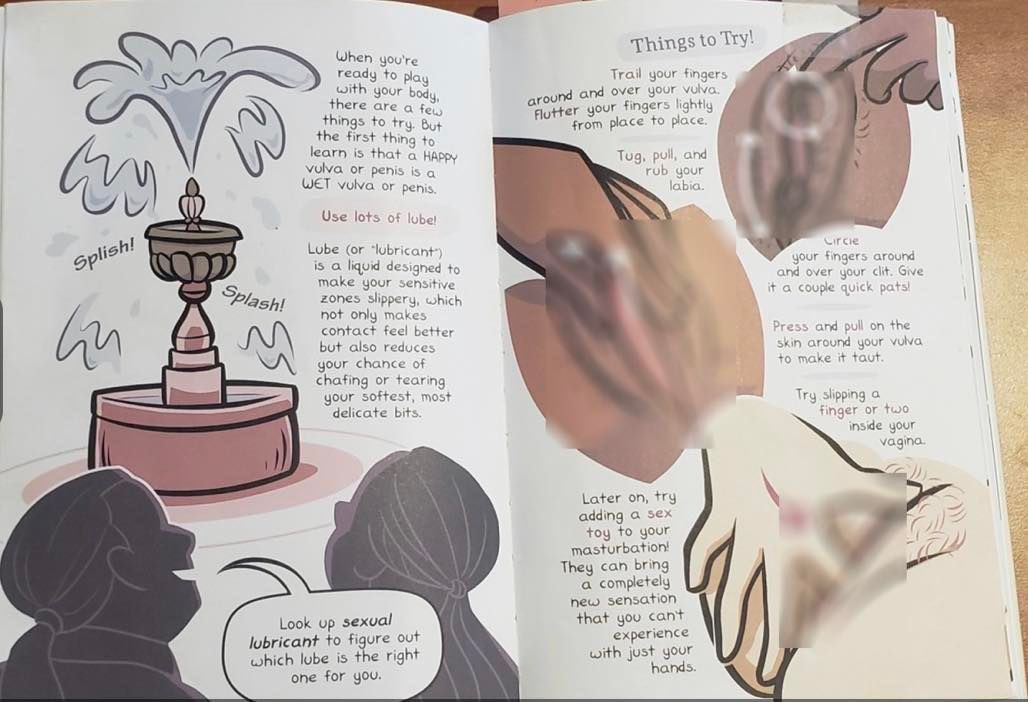 When you're
ready to play
with your body,
there are a few
things to try. But
the first thing to
learn is that a HAPPY
vulva or penis is a
WET vulva or penis.
Use lots of lube!
Lube (or "lubricant")
is a liquid designed to
make your sensitive
zones slippery, which
not only makes
contact feel better
but also reduces
your chance of
chafing or tearing
your softest, most
delicate bits.
Splish!
Splash!
Look up sexual
lubricant to figure out
which lube is the right
one for you.
Things to Try!
Trail your fingers
around and over your vulva.
Flutter your fingers lightly
from place to place.
Tug, pull, and
rub your
labia.
Circle
your fingers around
and over your clit. Give
it a couple quick pats!
Press and pull on the
skin around your vulva
to make it taut.
Try slipping a
finger or two
inside your
vagina.
Later on, try
adding a sex
toy to your
masturbation!
They can bring
a completely
new sensation
that you can't
experience
with just your
hands.